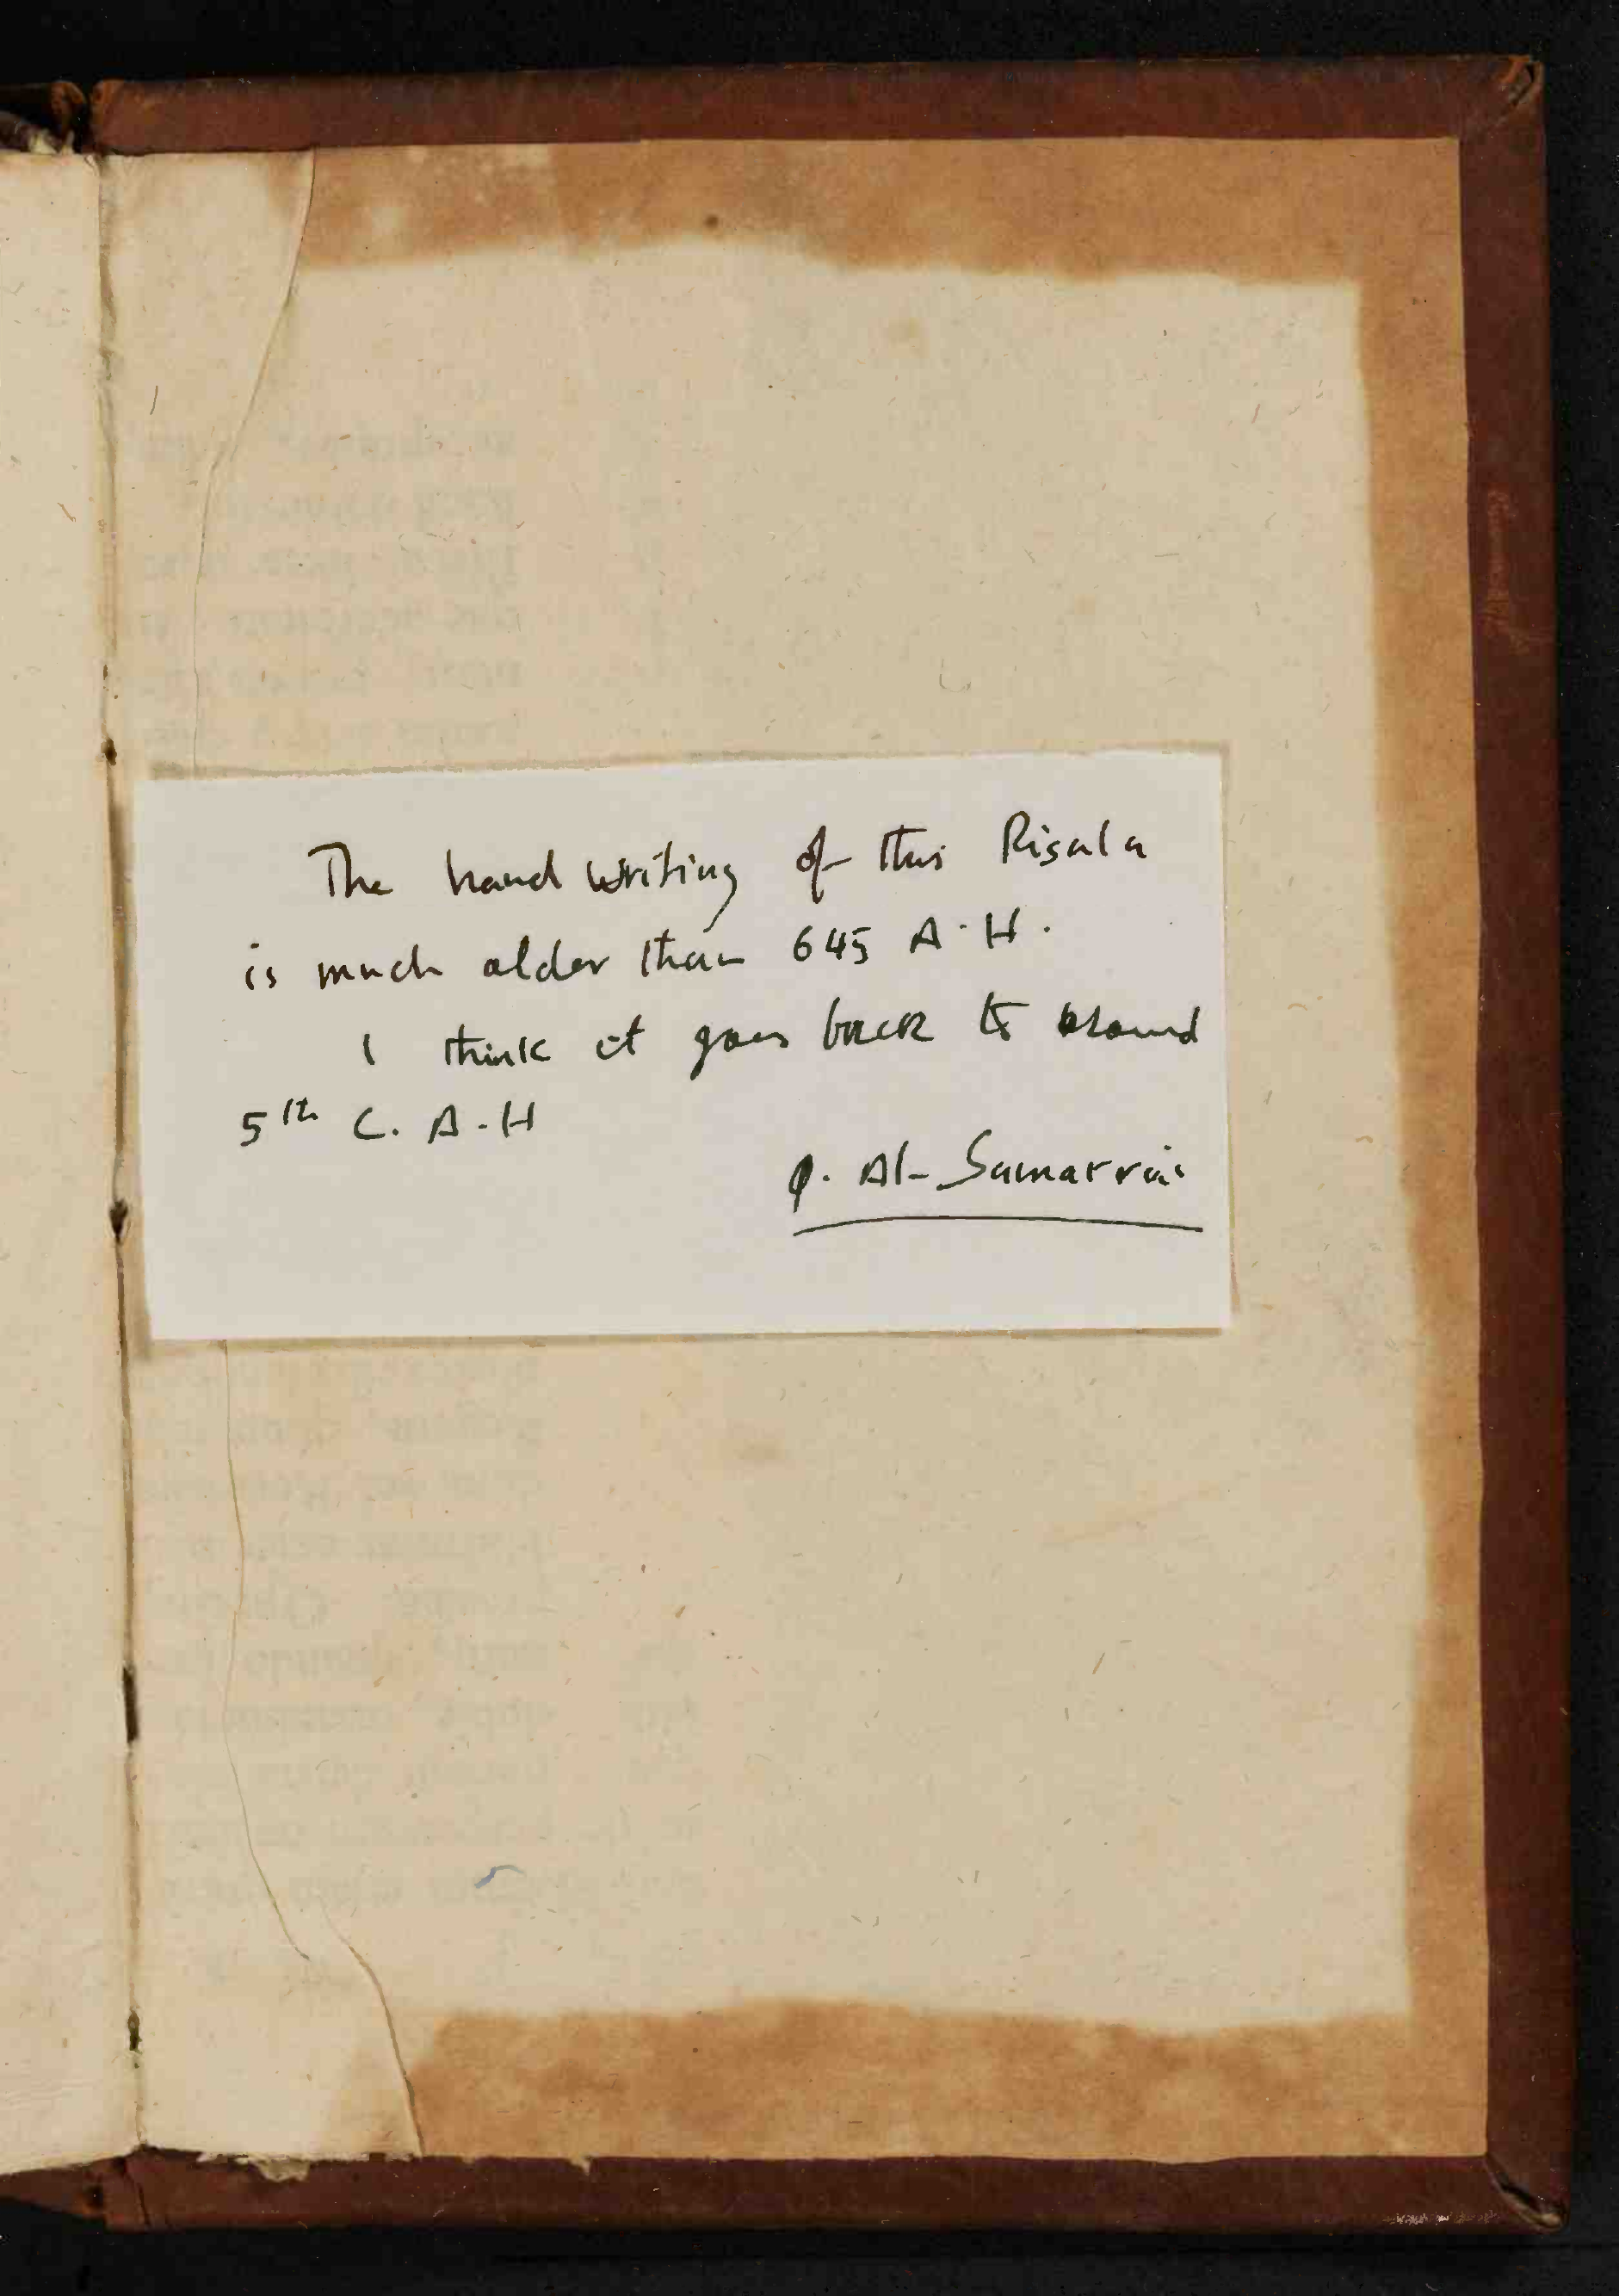 The hand writing of this Risala
is much older than 645 A.H.
I think it goes back to around
5th C. A.H
Q. Al-Samarrai